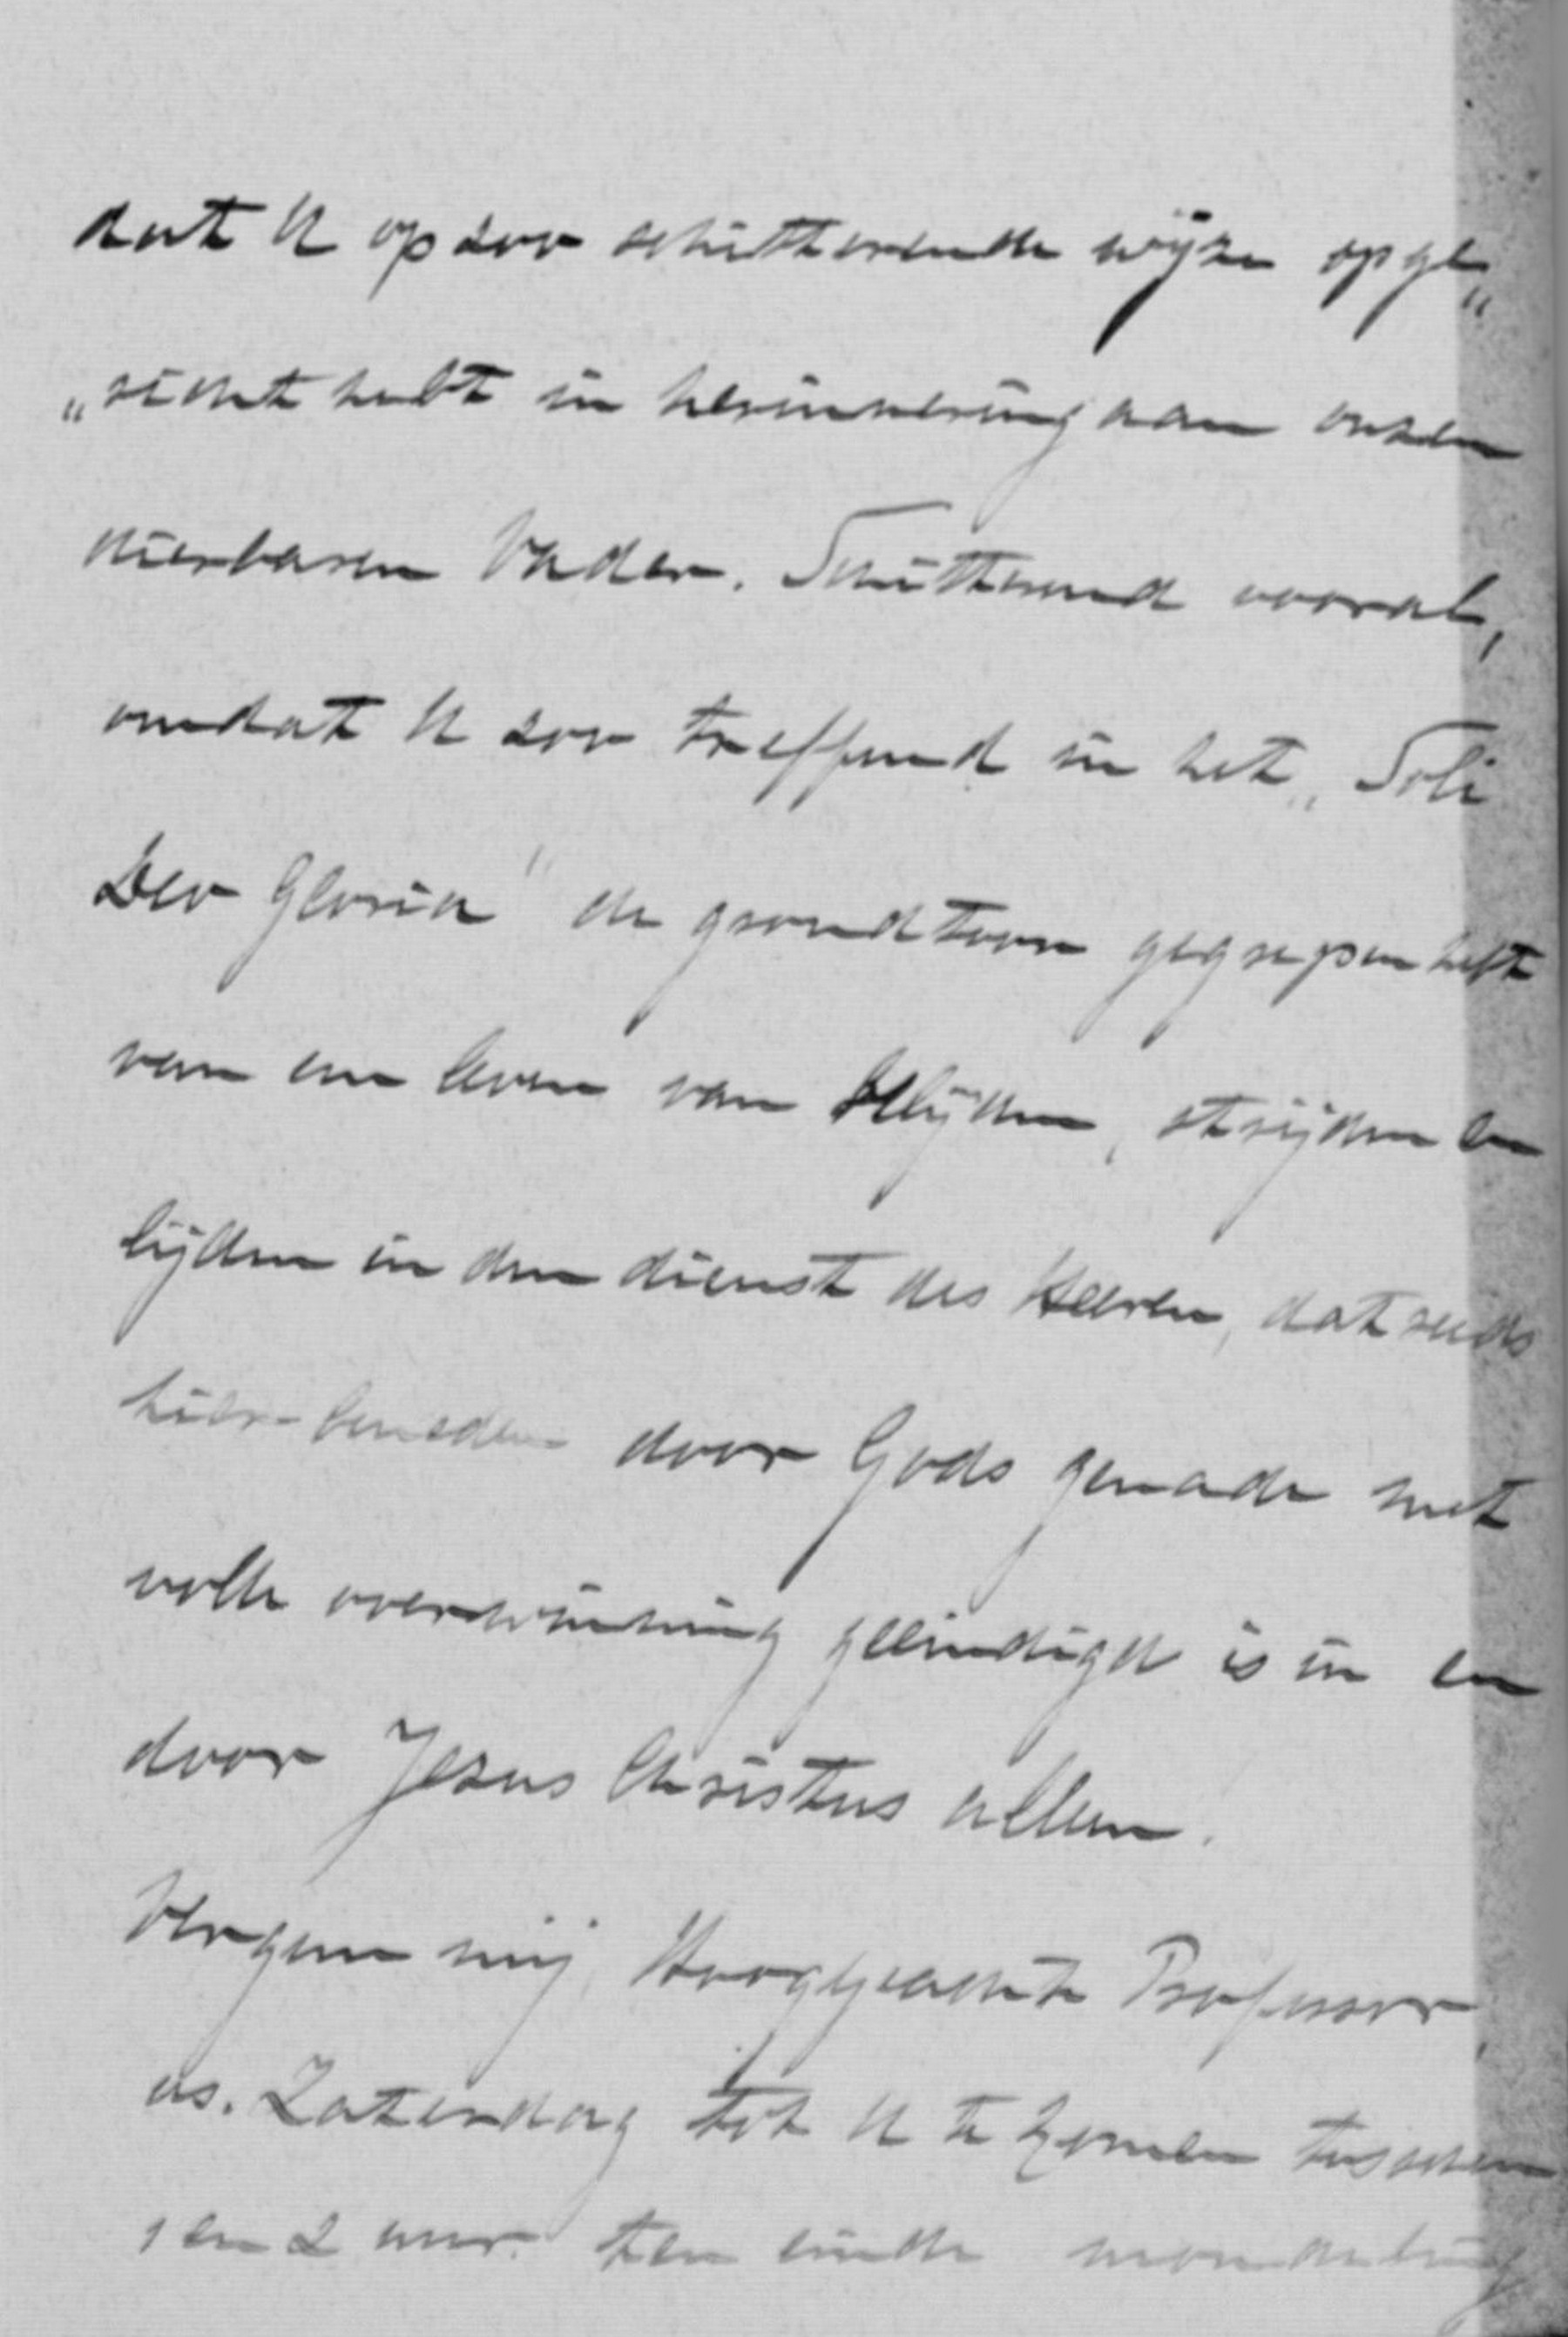 dat U op zoo schitterende wijze opge„
„richt hebt in herinnering aan onzen
dierbaren Vader. Schitterend vooral,
omdat U zoo treffend in het „Soli
Deo Gloria" de grondtoon gegrepen hebt
van een leven van belijden, strijden en
lijden in den dienst des Heeren, dat reeds
hier-beneden door Gods genade met
volle overwinning geëindigd is in en
door Jesus Christus alleen.
Vergun mij, Hooggeachte Professor,
as. Zaterdag tot U te komen tusschen
1 en 2 uur ten einde mondeling